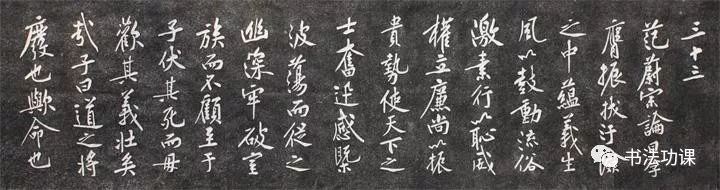 三十三
范蔚宗論李
膺振拔汙險
之中蘊義生
風以鼓動流俗
激素行以恥威
權立廉尚以振
貴埶使天下之
士奮迅感槩
波蕩而從之
幽深牢破室
族而不顧至于
子伏其死而母
歡其義壯矣
哉子曰道之將
廢也歟命也
书法功课